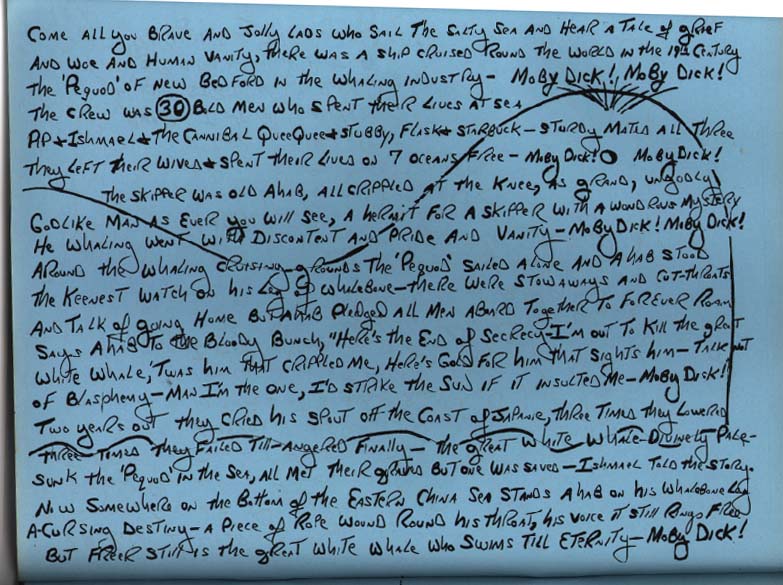 COME ALL YOU BRAVE AND JOLLY LADS WHO SAIL THE SALTY SEA AND HEAR A TALE OF GRIEF
AND WOE AND HUMAN VANITY, THERE WAS A SHIP CRUISED 'ROUND THE WORLD IN THE 19TH CENTURY
THE 'PEQUOD' OF NEW BEDFORD IN THE WHALING INDUSTRY— MOBY DICK! MOBY DICK!
THE CREW WAS 30 BOLD MEN WHO SPENT THEIR LIVES AT SEA
PIP & ISHMAEL & THE CANNIBAL QUEEQUEG & STUBBY, FLASK & STARBUCK—STURDY MATES ALL THREE
THEY LEFT THEIR WIVES & SPENT THEIR LIVES ON 7 OCEANS FREE—MOBY DICK! MOBY DICK!
THE SKIPPER WAS OLD AHAB, ALL CRIPPLED AT THE KNEE, AS GRAND, UNGODLY
GODLIKE MAN AS EVER YOU WILL SEE, A HERMIT FOR A SKIPPER WITH A WONDROUS MYSTERY
HE WHALING WENT WITH DISCONTENT AND PRIDE AND VANITY—MOBY DICK! MOBY DICK!
AROUND THE WHALING CRUISING-GROUNDS THE 'PEQUOD' SAILED ALONE AND AHAB STOOD
THE KEENEST WATCH ON HIS LEG OF WHALEBONE—THERE WERE STOWAWAYS AND CUT-THROATS
AND TALK OF GOING HOME BUT AHAB PLEDGED ALL MEN ABOARD TOGETHER TO FOREVER ROAM
SAYS AHAB TO THE BLOODY BUNCH, "HERE'S THE END OF SECRECY—I'M OUT TO KILL THE GREAT
WHITE WHALE, 'TWAS HIM THAT CRIPPLED ME, HERE'S GOLD FOR HIM THAT SIGHTS HIM—TALK NOT
OF BLASPHEMY—MAN I'M THE ONE, I'D STRIKE THE SUN IF IT INSULTED ME—MOBY DICK!"
TWO YEARS OUT THEY CRIED HIS SPOUT OFF THE COAST OF JAPANIE, THREE TIMES THEY LOWERED
THREE TIMES THEY FAILED TILL—ANGERED FINALLY— THE GREAT WHITE WHALE—DIVINELY PALE—
SUNK THE 'PEQUOD' IN THE SEA, ALL MET THEIR GRAVES BUT ONE WAS SAVED—ISHMAEL TOLD THE STORY.
NOW SOMEWHERE ON THE BOTTOM OF THE EASTERN CHINA SEA STANDS AHAB ON HIS WHALEBONE LEG
A-CURSING DESTINY—A PIECE OF ROPE WOUND ROUND HIS THROAT, HIS VOICE IT STILL RINGS FREE
BUT FREER STILL IS THE GREAT WHITE WHALE WHO SWIMS TILL ETERNITY—MOBY DICK!